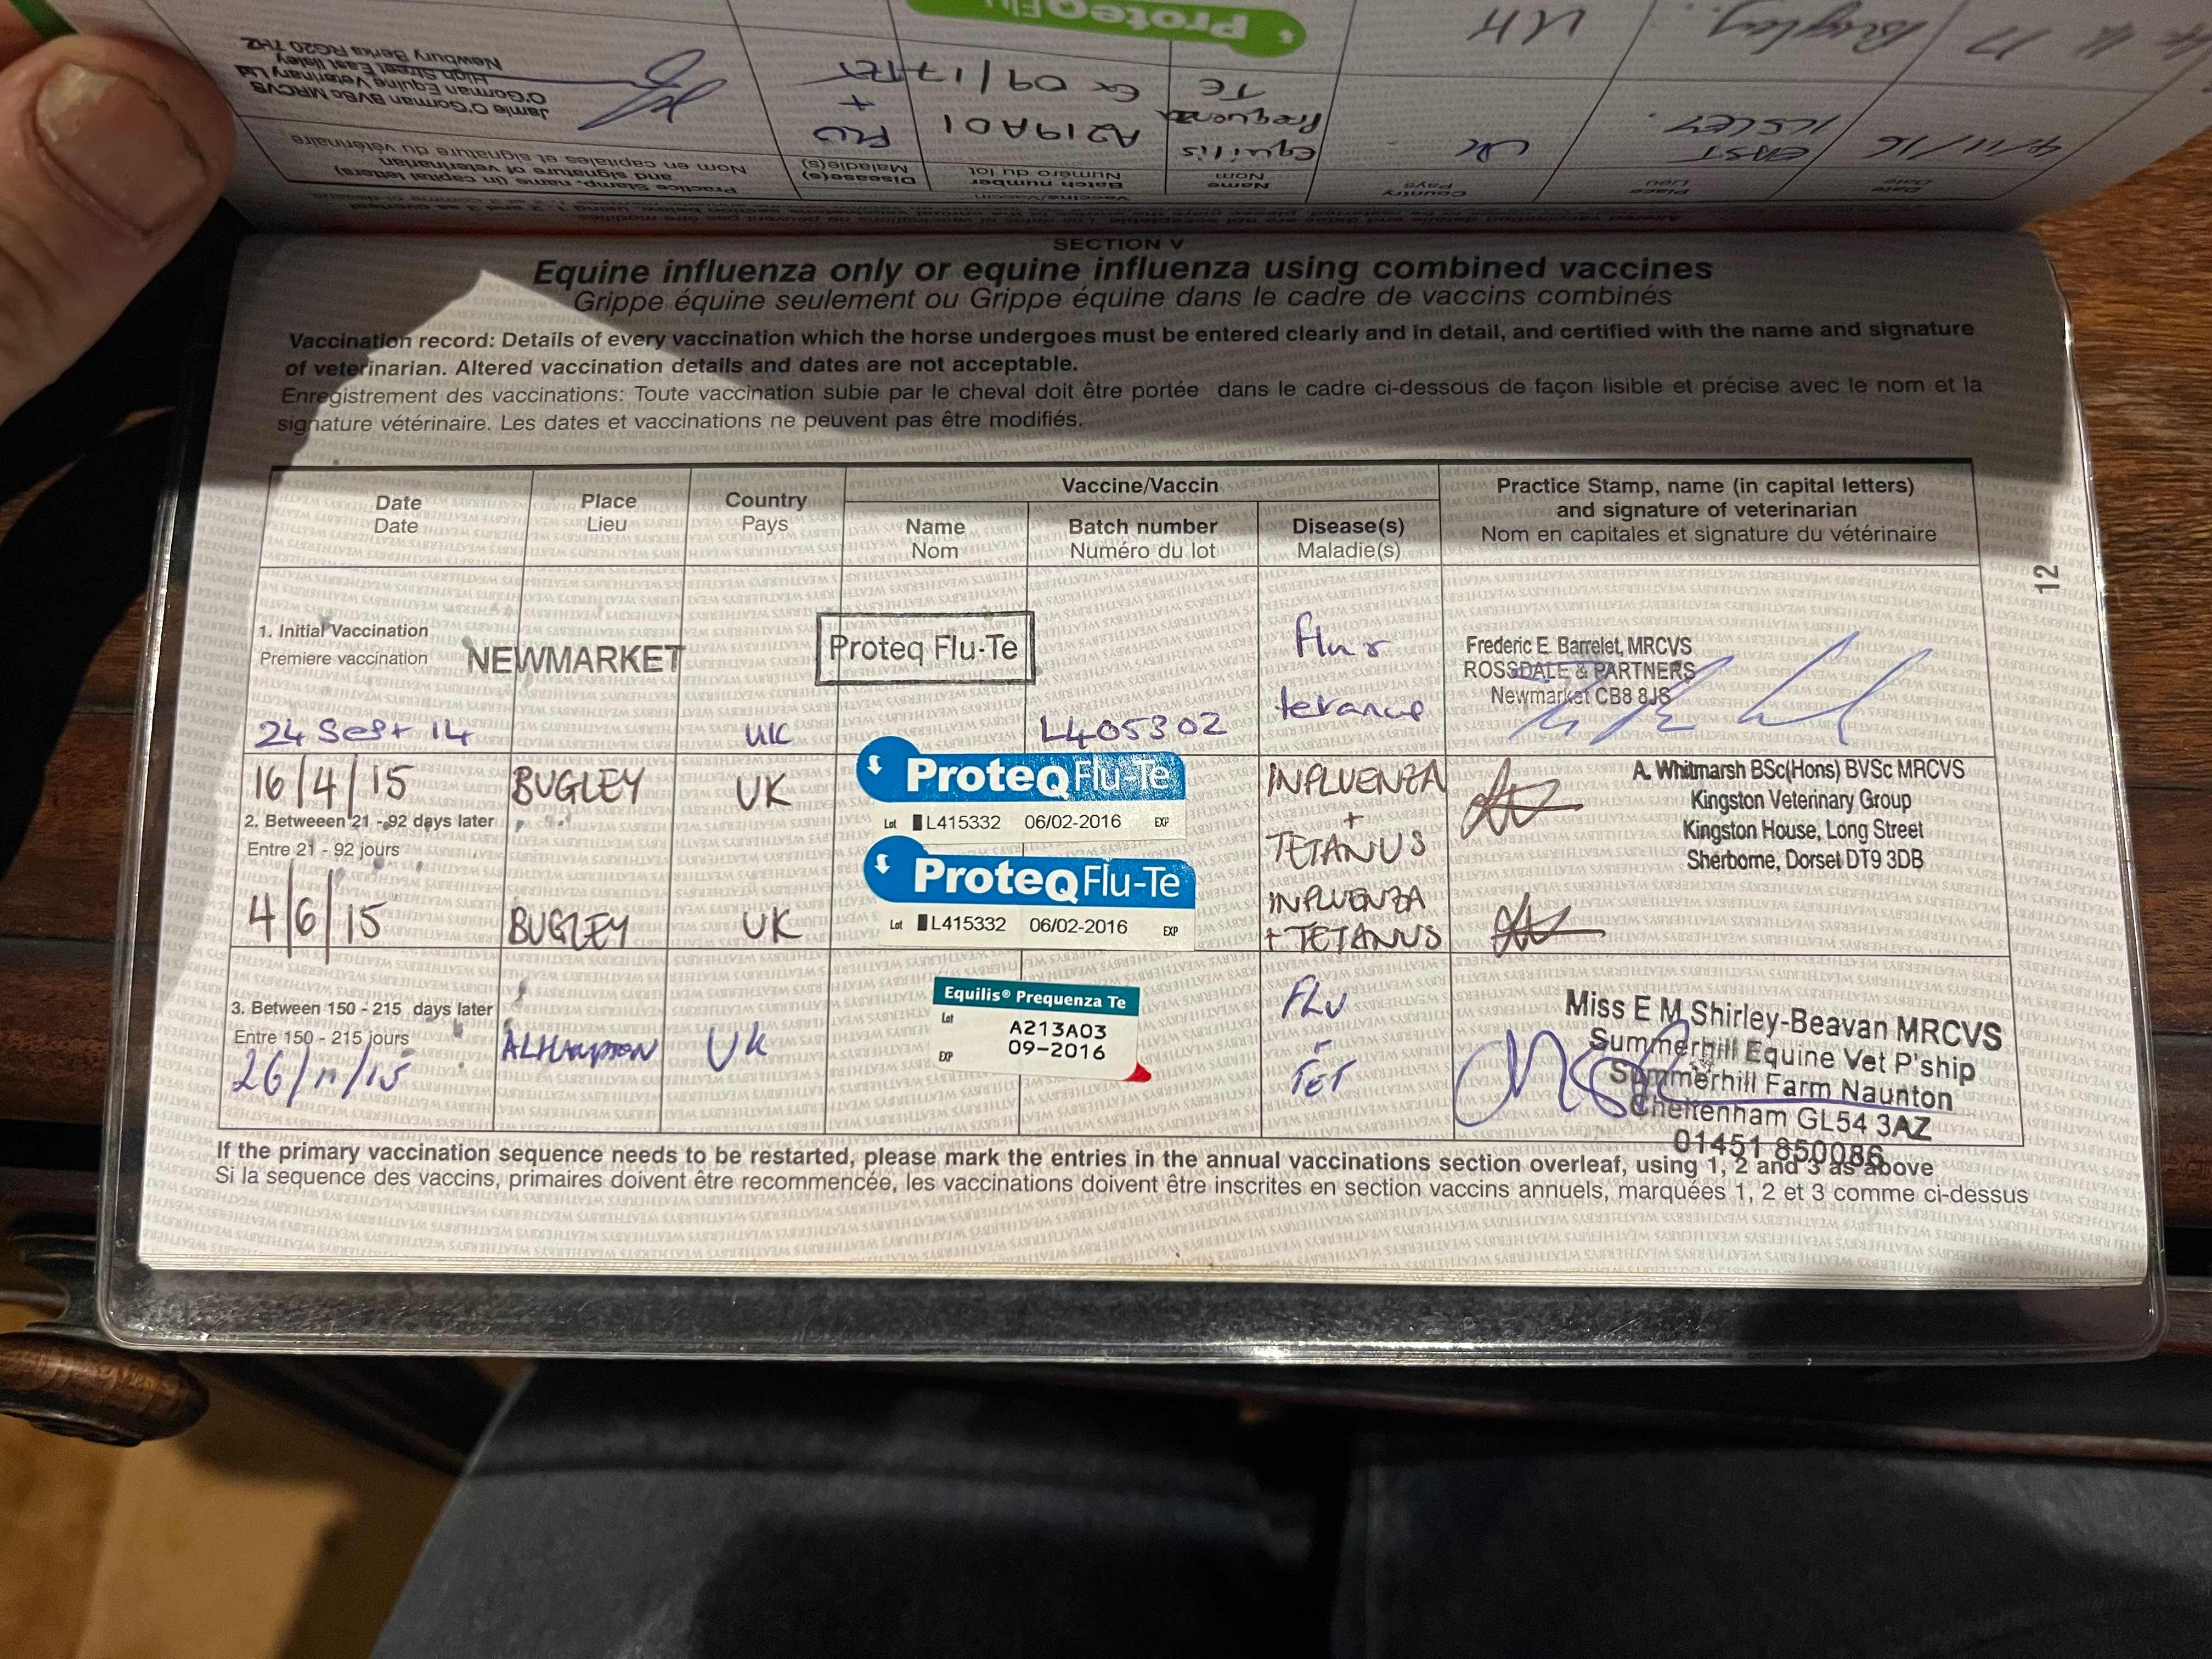 SECTION V
Equine influenza only or equine influenza using combined vaccines
Grippe équine seulement ou Grippe équine dans le cadre de vaccins combinés
Vaccination record: Details of every vaccination which the horse undergoes must be entered clearly and in detail, and certified with the name and signature
of veterinarian. Altered vaccination details and dates are not acceptable.
Enregistrement des vaccinations: Toute vaccination subie par le cheval doit être portée dans le cadre ci-dessous de façon lisible et précise avec le nom et la
signature vétérinaire. Les dates et vaccinations ne peuvent pas être modifiés.
Date
Date
Place
Lieu
Country
Pays
Vaccine/Vaccin
Name
Nom
Batch number
Numéro du lot
Disease(s)
Maladie(s)
Practice Stamp, name (in capital letters)
and signature of veterinarian
Nom en capitales et signature du vétérinaire
12
1. Initial Vaccination
Premiere vaccination
24 Sept 14
NEWMARKET
UK
Proteq Flu-Te
L405302
Flu &
tetanus
Frederic E. Barrelet, MRCVS
ROSSDALE & PARTNERS
Newmarket CB8 8JS
16/4/15
BUGLEY
UK
ProteqFlu-Te
Lot L415332 06/02-2016 EXP
INFLUENZA
+
TETANUS
A. Whitmarsh BSc(Hons) BVSc MRCVS
Kingston Veterinary Group
Kingston House, Long Street
Sherborne, Dorset DT9 3DB
2. Betweeen 21 - 92 days later
Entre 21 - 92 jours
4/6/15
BUGLEY
UK
ProteqFlu-Te
Lot L415332 06/02-2016 EXP
INFLUENZA
+ TETANUS
3. Between 150 - 215 days later
Entre 150 - 215 jours
26/11/15
ALHAMPTON
UK
Equilis® Prequenza Te
Lot A213A03
EXP 09-2016
FLU
+
TET
Miss E M Shirley-Beavan MRCVS
Summerhill Equine Vet P'ship
Summerhill Farm Naunton
Cheltenham GL54 3AZ
01451 850086
If the primary vaccination sequence needs to be restarted, please mark the entries in the annual vaccinations section overleaf, using 1, 2 and 3 as above
Si la sequence des vaccins, primaires doivent être recommencée, les vaccinations doivent être inscrites en section vaccins annuels, marquées 1, 2 et 3 comme ci-dessus
Date
Date
Place
Lieu
Country
Pays
Vaccine/Vaccin
Name
Nom
Batch number
Numéro du lot
Disease(s)
Maladie(s)
Practice Stamp, name (in capital letters)
and signature of veterinarian
Nom en capitales et signature du vétérinaire
4/11/16
EAST
ILSLEY
UK
Equilis
Prequenza
TE
A219A01
Ex 09/17
FLU
+
TET
Jamie O'Gorman BVSc MRCVS
O'Gorman Equine Veterinary Ltd
High Street East Ilsley
Newbury Berks RG20 7HZ
Bugley
UK
ProteqFlu